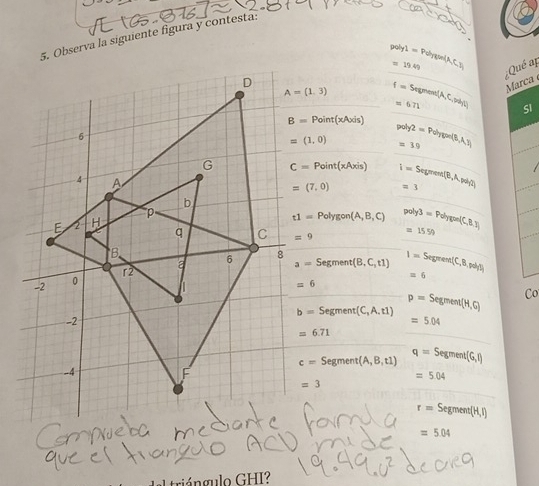 √[65.876] ≈ 12.8
5. Observa la siguiente figura y contesta:
D
6
G
4
A
b
p
E
H
2
c
q
C
B
r
2
a
6
8
-2
0
I
-2
-4
F
A = (1, 3)
B = Point(xAxis)
= (1, 0)
C = Point(xAxis)
= (7, 0)
t1 = Polygon(A, B, C)
= 9
a = Segment(B, C, t1)
= 6
b = Segment(C, A, t1)
= 6.71
c = Segment(A, B, t1)
= 3
poly1 = Polygon(A, C, 3)
= 19.49
f = Segment(A, C, poly1)
= 6.71
poly2 = Polygon(B, A, 3)
= 3.9
i = Segment(B, A, poly2)
= 3
poly3 = Polygon(C, B, 3)
= 15.59
l = Segment(C, B, poly3)
= 6
p = Segment(H, G)
= 5.04
q = Segment(G, I)
= 5.04
r = Segment(H, I)
= 5.04
Comprueba mediante formula
que el triangulo ACD mide
19.49 u² de area
triángulo GHI?
¿Qué ap
Marca
SI
Co